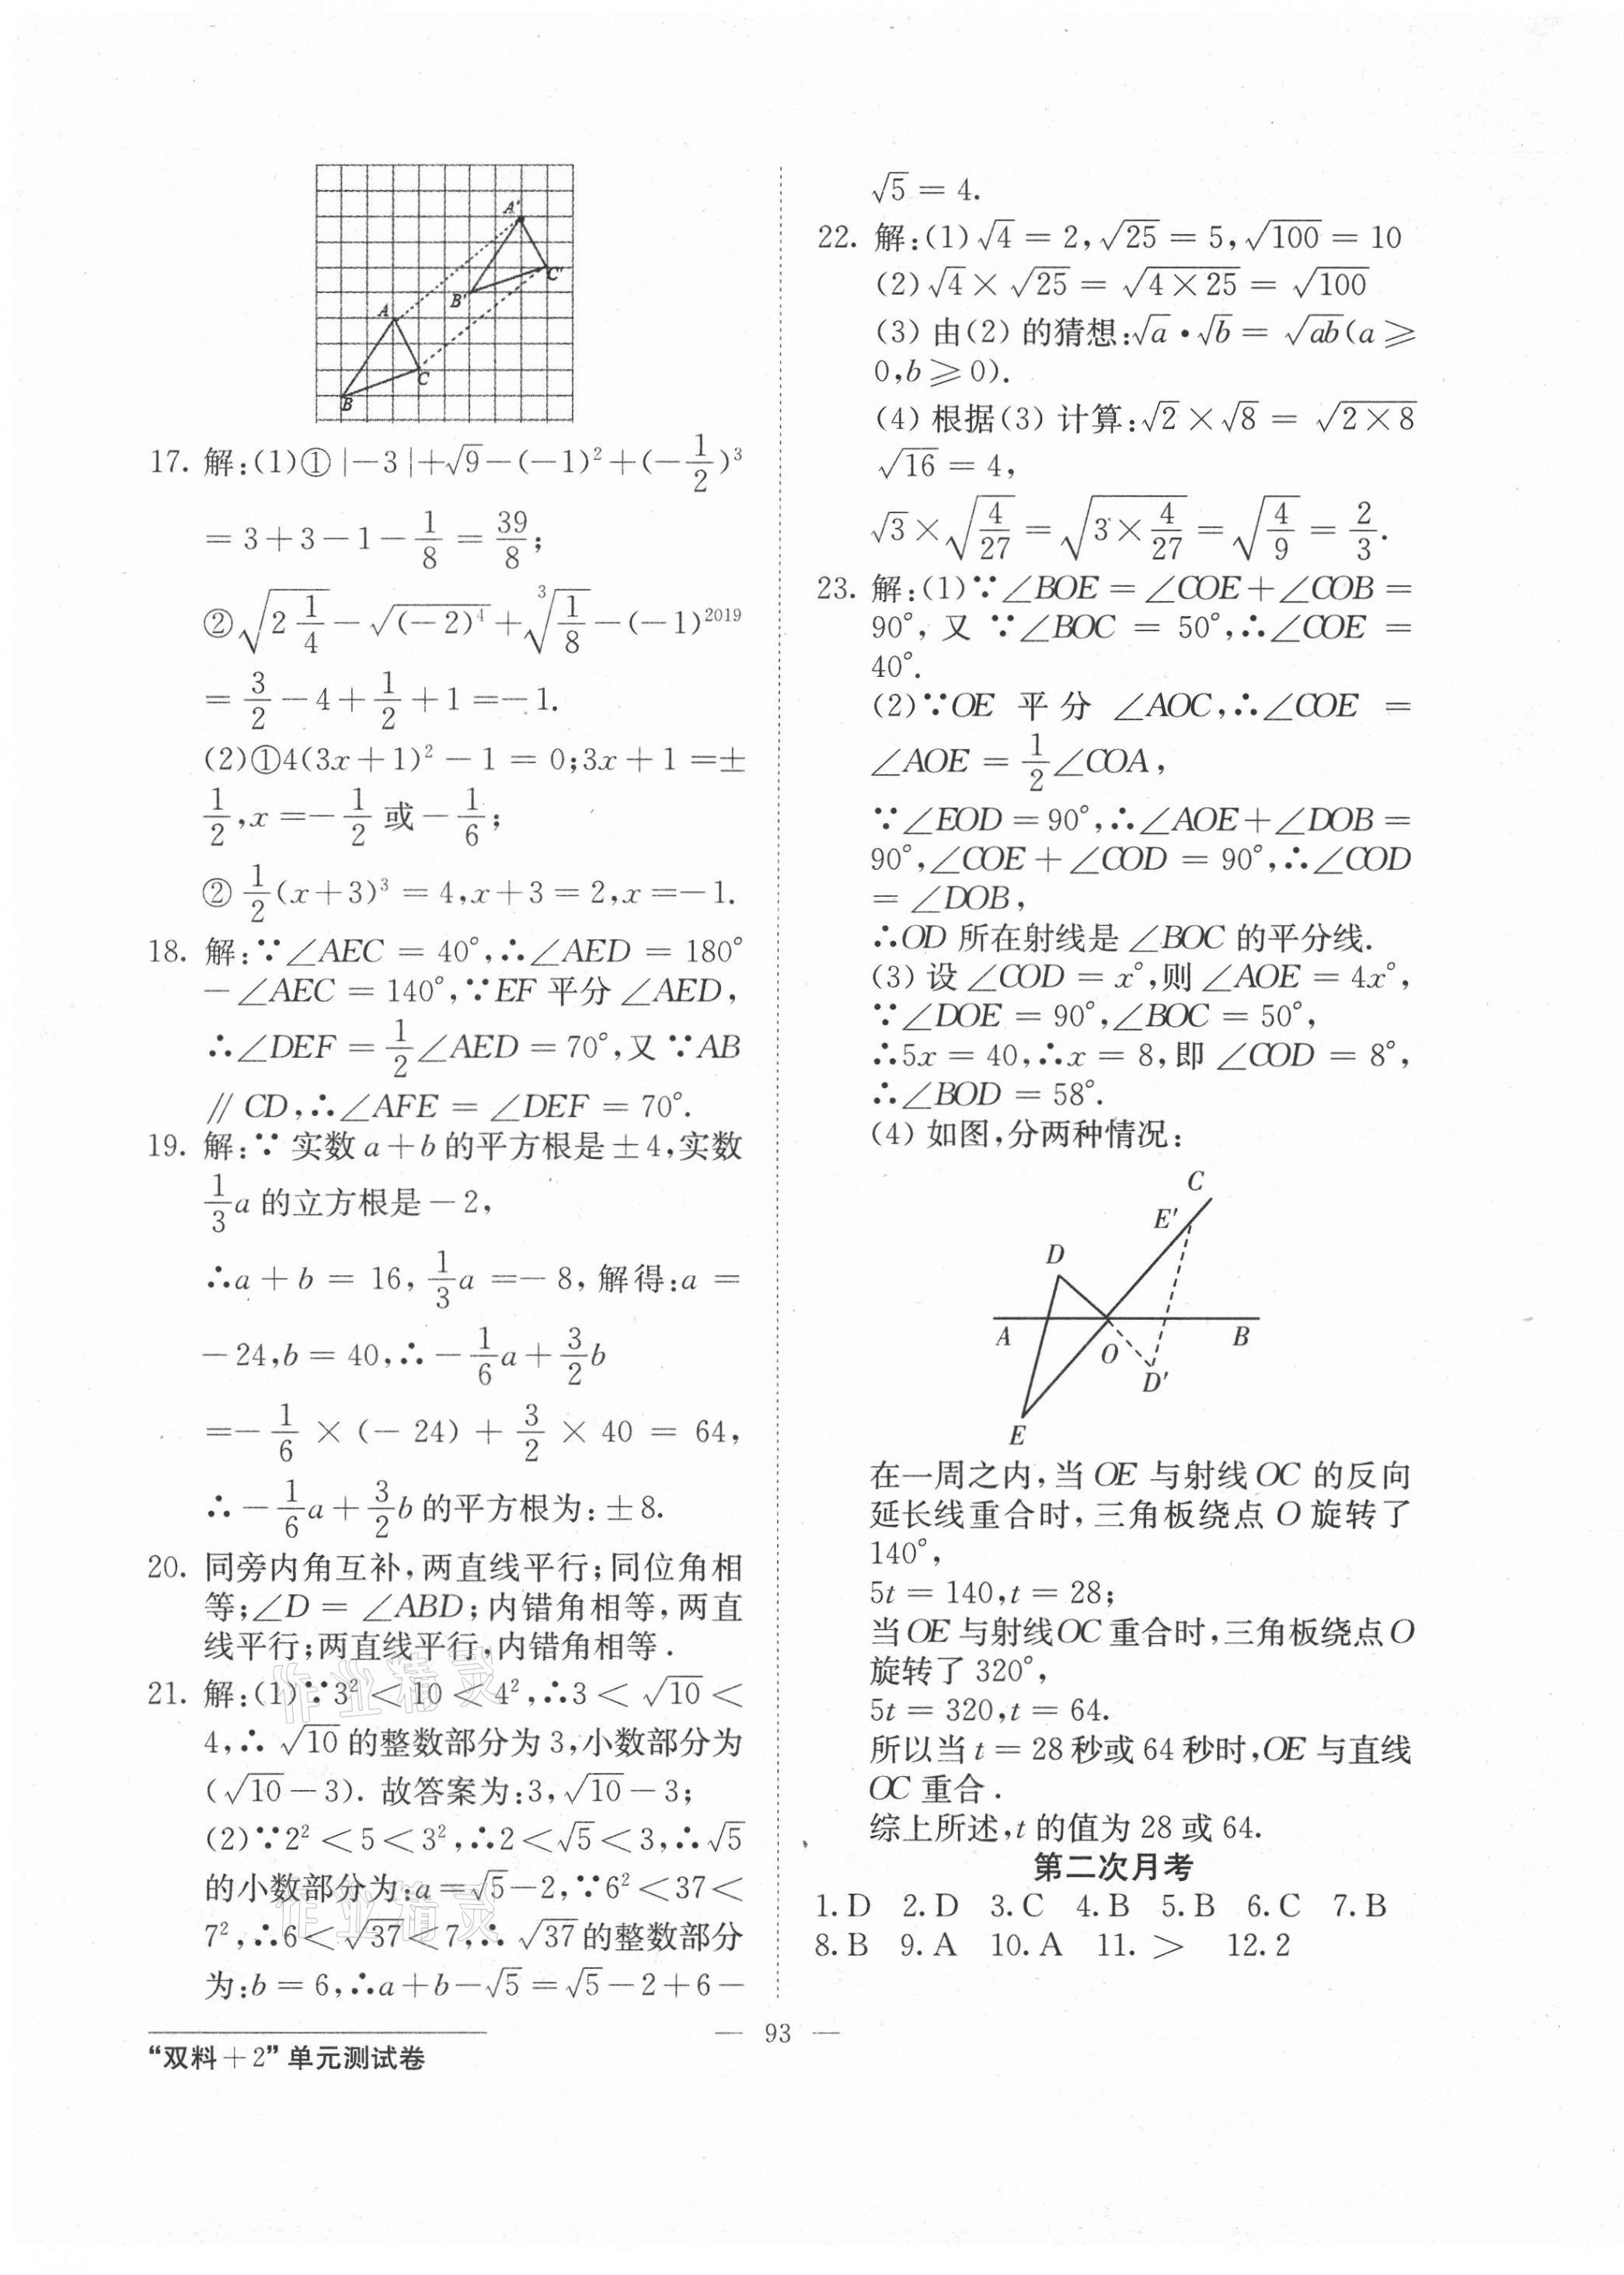 A'
C'
B'
A
C
B
17. 解:(1)①|−3|+√9−(−1)²+(−1/2)³
=3+3−1−1/8=39/8;
②√(2 1/4)−√((−2)⁴)+∛(1/8)−(−1)²⁰¹⁹
=3/2−4+1/2+1=−1.
(2)①4(3x+1)²−1=0;3x+1=±
1/2,x=−1/2或−1/6;
②1/2(x+3)³=4,x+3=2,x=−1.
18. 解:∵∠AEC=40°,∴∠AED=180°
−∠AEC=140°,∵EF平分∠AED,
∴∠DEF=1/2∠AED=70°,又∵AB
∥CD,∴∠AFE=∠DEF=70°.
19. 解:∵实数a+b的平方根是±4,实数
1/3a的立方根是−2,
∴a+b=16,1/3a=−8,解得:a=
−24,b=40,∴−1/6a+3/2b
=−1/6×(−24)+3/2×40=64,
∴−1/6a+3/2b的平方根为:±8.
20. 同旁内角互补,两直线平行;同位角相
等;∠D=∠ABD;内错角相等,两直
线平行;两直线平行,内错角相等.
21. 解:(1)∵3²<10<4²,∴3<√10<
4,∴√10的整数部分为3,小数部分为
(√10−3). 故答案为:3,√10−3;
(2)∵2²<5<3²,∴2<√5<3,∴√5
的小数部分为:a=√5−2,∵6²<37<
7²,∴6<√37<7,∴√37的整数部分
为:b=6,∴a+b−√5=√5−2+6−
√5=4.
22. 解:(1)√4=2,√25=5,√100=10
(2)√4×√25=√(4×25)=√100
(3)由(2)的猜想:√a•√b=√ab(a⩾
0,b⩾0).
(4)根据(3)计算:√2×√8=√(2×8)
√16=4,
√3×√(4/27)=√(3×4/27)=√(4/9)=2/3.
23. 解:(1)∵∠BOE=∠COE+∠COB=
90°,又∵∠BOC=50°,∴∠COE=
40°.
(2)∵OE平分∠AOC,∴∠COE=
∠AOE=1/2∠COA,
∵∠EOD=90°,∴∠AOE+∠DOB=
90°,∠COE+∠COD=90°,∴∠COD
=∠DOB,
∴OD所在射线是∠BOC的平分线.
(3)设∠COD=x°,则∠AOE=4x°,
∵∠DOE=90°,∠BOC=50°,
∴5x=40,∴x=8,即∠COD=8°,
∴∠BOD=58°.
(4)如图,分两种情况:
C
E'
D
A
O
B
D'
E
在一周之内,当OE与射线OC的反向
延长线重合时,三角板绕点O旋转了
140°,
5t=140,t=28;
当OE与射线OC重合时,三角板绕点O
旋转了320°,
5t=320,t=64.
所以当t=28秒或64秒时,OE与直线
OC重合.
综上所述,t的值为28或64.
第二次月考
1.D 2.D 3.C 4.B 5.B 6.C 7.B
8.B 9.A 10.A 11.> 12.2
— 93 —
“双料+2”单元测试卷
作业精灵
作业精灵